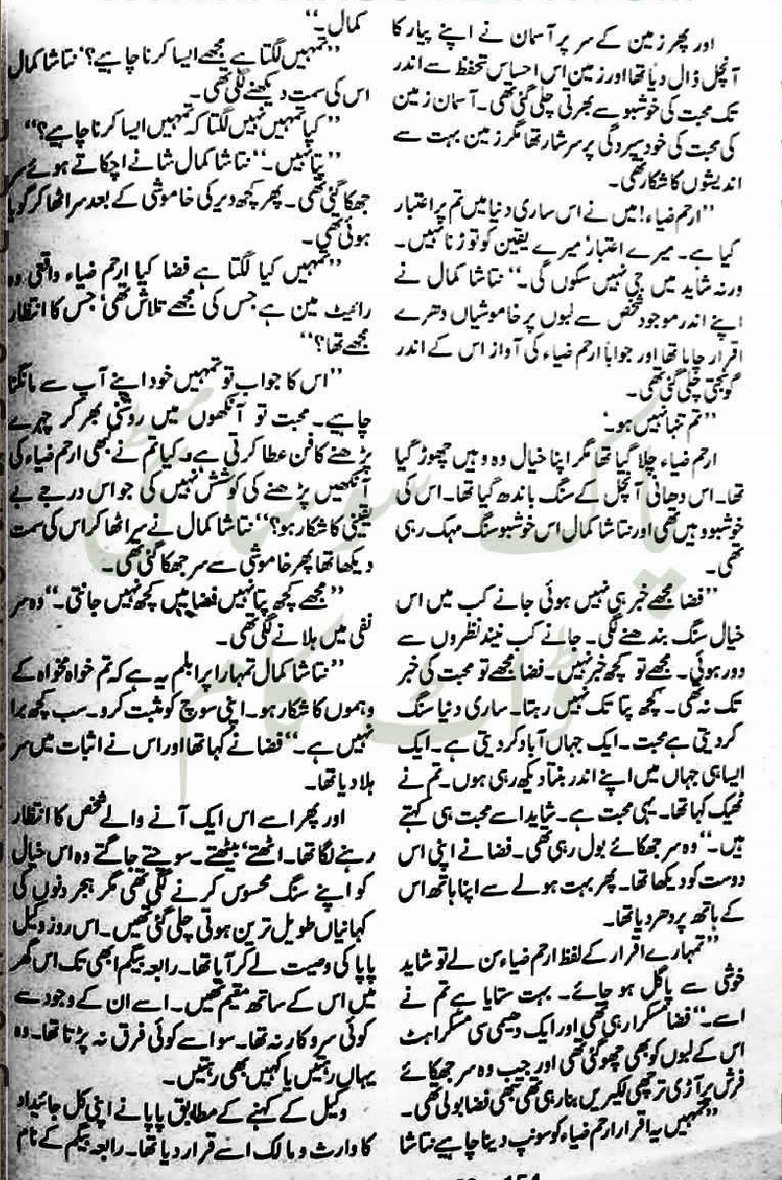 اور پھر زمین کے سر پر آسمان نے اپنے پیار کا
آنچل ڈال دیا تھا اور زمین اس احساس تحفظ سے اندر
تک محبت کی خوشبو سے بھرتی چلی گئی تھی۔ آسمان زمین
کی محبت کی خود سپردگی پر سرشار تھا مگر زمین بہت سے
اندیشوں کا شکار تھی۔
”ارحم ضیاء! میں نے اس ساری دنیا میں تم پر اعتبار
کیا ہے۔ میرے اعتبار‘ میرے یقین کو توڑنا نہیں۔
ورنہ شاید میں جی نہیں سکوں گی۔“ نتاشا کمال نے
اپنے اندر موجود شخص سے لبوں پر خاموشیاں دھرے
اقرار چاہا تھا اور جواباً ارحم ضیاء کی آواز اس کے اندر
گونجتی چلی گئی تھی۔
”تم تنہا نہیں ہو۔“
ارحم ضیاء چلا گیا تھا مگر اپنا خیال وہ وہیں چھوڑ گیا
تھا۔ اس دھانی آنچل کے سنگ باندھ گیا تھا۔ اس کی
خوشبو وہیں تھی اور نتاشا کمال اس خوشبو سنگ مہک رہی
تھی۔
”فضا مجھے خبر ہی نہیں ہوئی جانے کب میں اس
خیال سنگ بندھنے لگی۔ جانے کب نیند نظروں سے
دور ہوئی۔ مجھے تو کچھ خبر نہیں۔ فضا مجھے تو محبت کی خبر
تک نہ تھی۔ کچھ پتا تک نہیں رہتا۔ ساری دنیا سنگ
کردیتی ہے محبت۔ ایک جہاں آباد کردیتی ہے۔ ایک
ایسا ہی جہاں میں اپنے اندر بنتا دیکھ رہی ہوں۔ تم نے
ٹھیک کہا تھا۔ یہی محبت ہے۔ شاید اسے محبت ہی کہتے
ہیں۔“ وہ سر جھکائے بول رہی تھی۔ فضا نے اپنی اس
دوست کو دیکھا تھا۔ پھر بہت ہولے سے اپنا ہاتھ اس
کے ہاتھ پر دھر دیا تھا۔
”تمہارے اقرار کے لفظ ارحم ضیاء سن لے تو شاید
خوشی سے پاگل ہو جائے۔ بہت ستایا ہے تم نے
اسے۔“ فضا مسکرا رہی تھی اور ایک دھیمی سی مسکراہٹ
اس کے لبوں کو بھی چھو گئی تھی اور جب وہ سر جھکائے
فرش پر آڑی ترچھی لکیریں بنا رہی تھی تبھی فضا بولی تھی۔
”تمہیں یہ اقرار ارحم ضیاء کو سونپ دینا چاہیے نتاشا
کمال۔“
”تمہیں لگتا ہے مجھے ایسا کرنا چاہیے؟“ نتاشا کمال
اس کی سمت دیکھنے لگی تھی۔
”کیا تمہیں نہیں لگتا کہ تمہیں ایسا کرنا چاہیے؟“
”پتا نہیں۔“ نتاشا کمال شانے اچکاتے ہوئے سر
جھکا گئی تھی۔ پھر کچھ دیر کی خاموشی کے بعد سر اٹھا کر گویا
ہوئی تھی۔
”تمہیں کیا لگتا ہے فضا کیا ارحم ضیاء واقعی وہ
رائیٹ مین ہے جس کی مجھے تلاش تھی‘ جس کا انتظار
مجھے تھا؟“
”اس کا جواب تو تمہیں خود اپنے آپ سے مانگنا
چاہیے۔ محبت تو آنکھوں میں روشنی بھر کر چہرے
پڑھنے کا فن عطا کرتی ہے۔ کیا تم نے کبھی ارحم ضیاء کی
آنکھیں پڑھنے کی کوشش نہیں کی جو اس درجے بے
یقینی کا شکار ہو؟“ نتاشا کمال نے سر اٹھا کر اس کی سمت
دیکھا تھا پھر خاموشی سے سر جھکا گئی تھی۔
”مجھے کچھ پتا نہیں فضا میں کچھ نہیں جانتی۔“ وہ سر
نفی میں ہلانے لگی تھی۔
”نتاشا کمال تمہارا پرابلم یہ ہے کہ تم خواہ مخواہ کے
وہموں کا شکار ہو۔ اپنی سوچ کو مثبت کرو۔ سب کچھ برا
نہیں ہے۔“ فضا نے کہا تھا اور اس نے اثبات میں سر
ہلا دیا تھا۔
اور پھر اسے اس ایک آنے والے شخص کا انتظار
رہنے لگا تھا۔ اٹھتے‘ بیٹھتے۔ سوچتے جاگتے وہ اس خیال
کو اپنے سنگ محسوس کرنے لگی تھی مگر ہجر دنوں کی
کہانیاں طویل ترین ہوتی چلی گئی تھیں۔ اس روز وکیل
پاپا کی وصیت لے کر آیا تھا۔ رابعہ بیگم ابھی تک اس گھر
میں اس کے ساتھ مقیم تھیں۔ اسے ان کے وجود سے
کوئی سروکار نہ تھا۔ سو اسے کوئی فرق نہ پڑتا تھا۔ وہ
یہاں رہتیں یا کہیں بھی رہتیں۔
وکیل کے کہنے کے مطابق پاپا نے اپنی کل جائیداد
کا وارث و مالک اسے قرار دیا تھا۔ رابعہ بیگم کے نام
پاک سوسائٹی
ڈاٹ کام